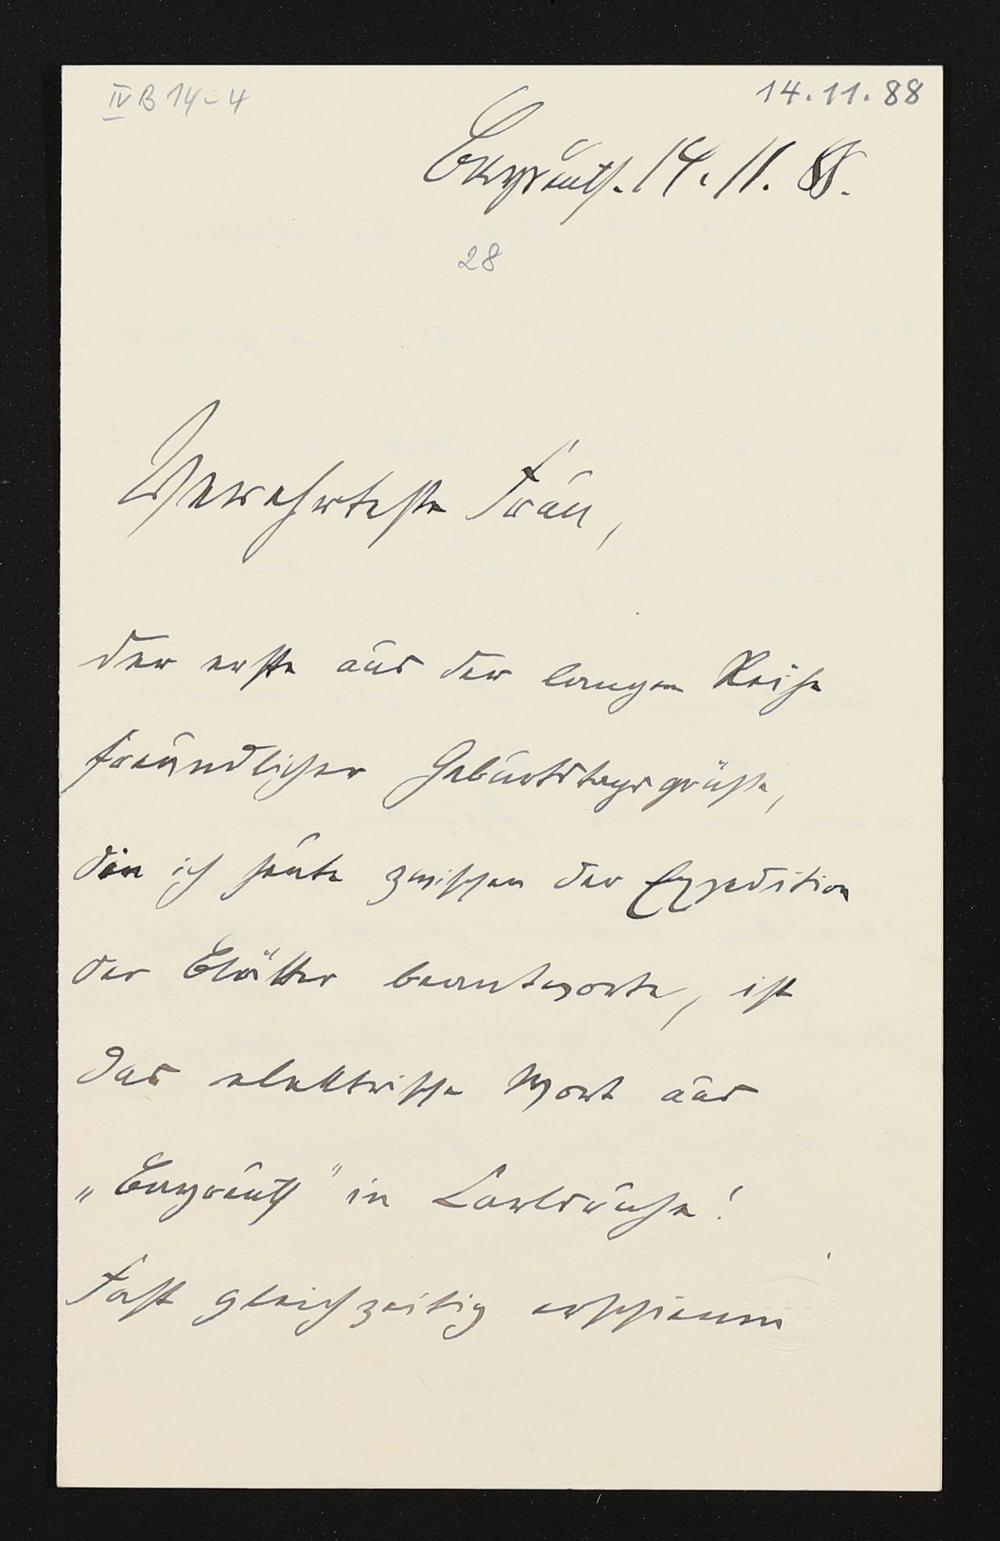 IV B 14-4
14.11.88
Bayreuth. 14. 11. 88.
28
Verehrteste Frau,
der erste aus der langen Reihe
freundlicher Geburtstagsgrüße,
den ich heute zwischen der Expedition
der Blätter beantworte, ist
das elektrische Wort aus
„Bayreuth" in Carlsruhe!
Fast gleichzeitig erschienen